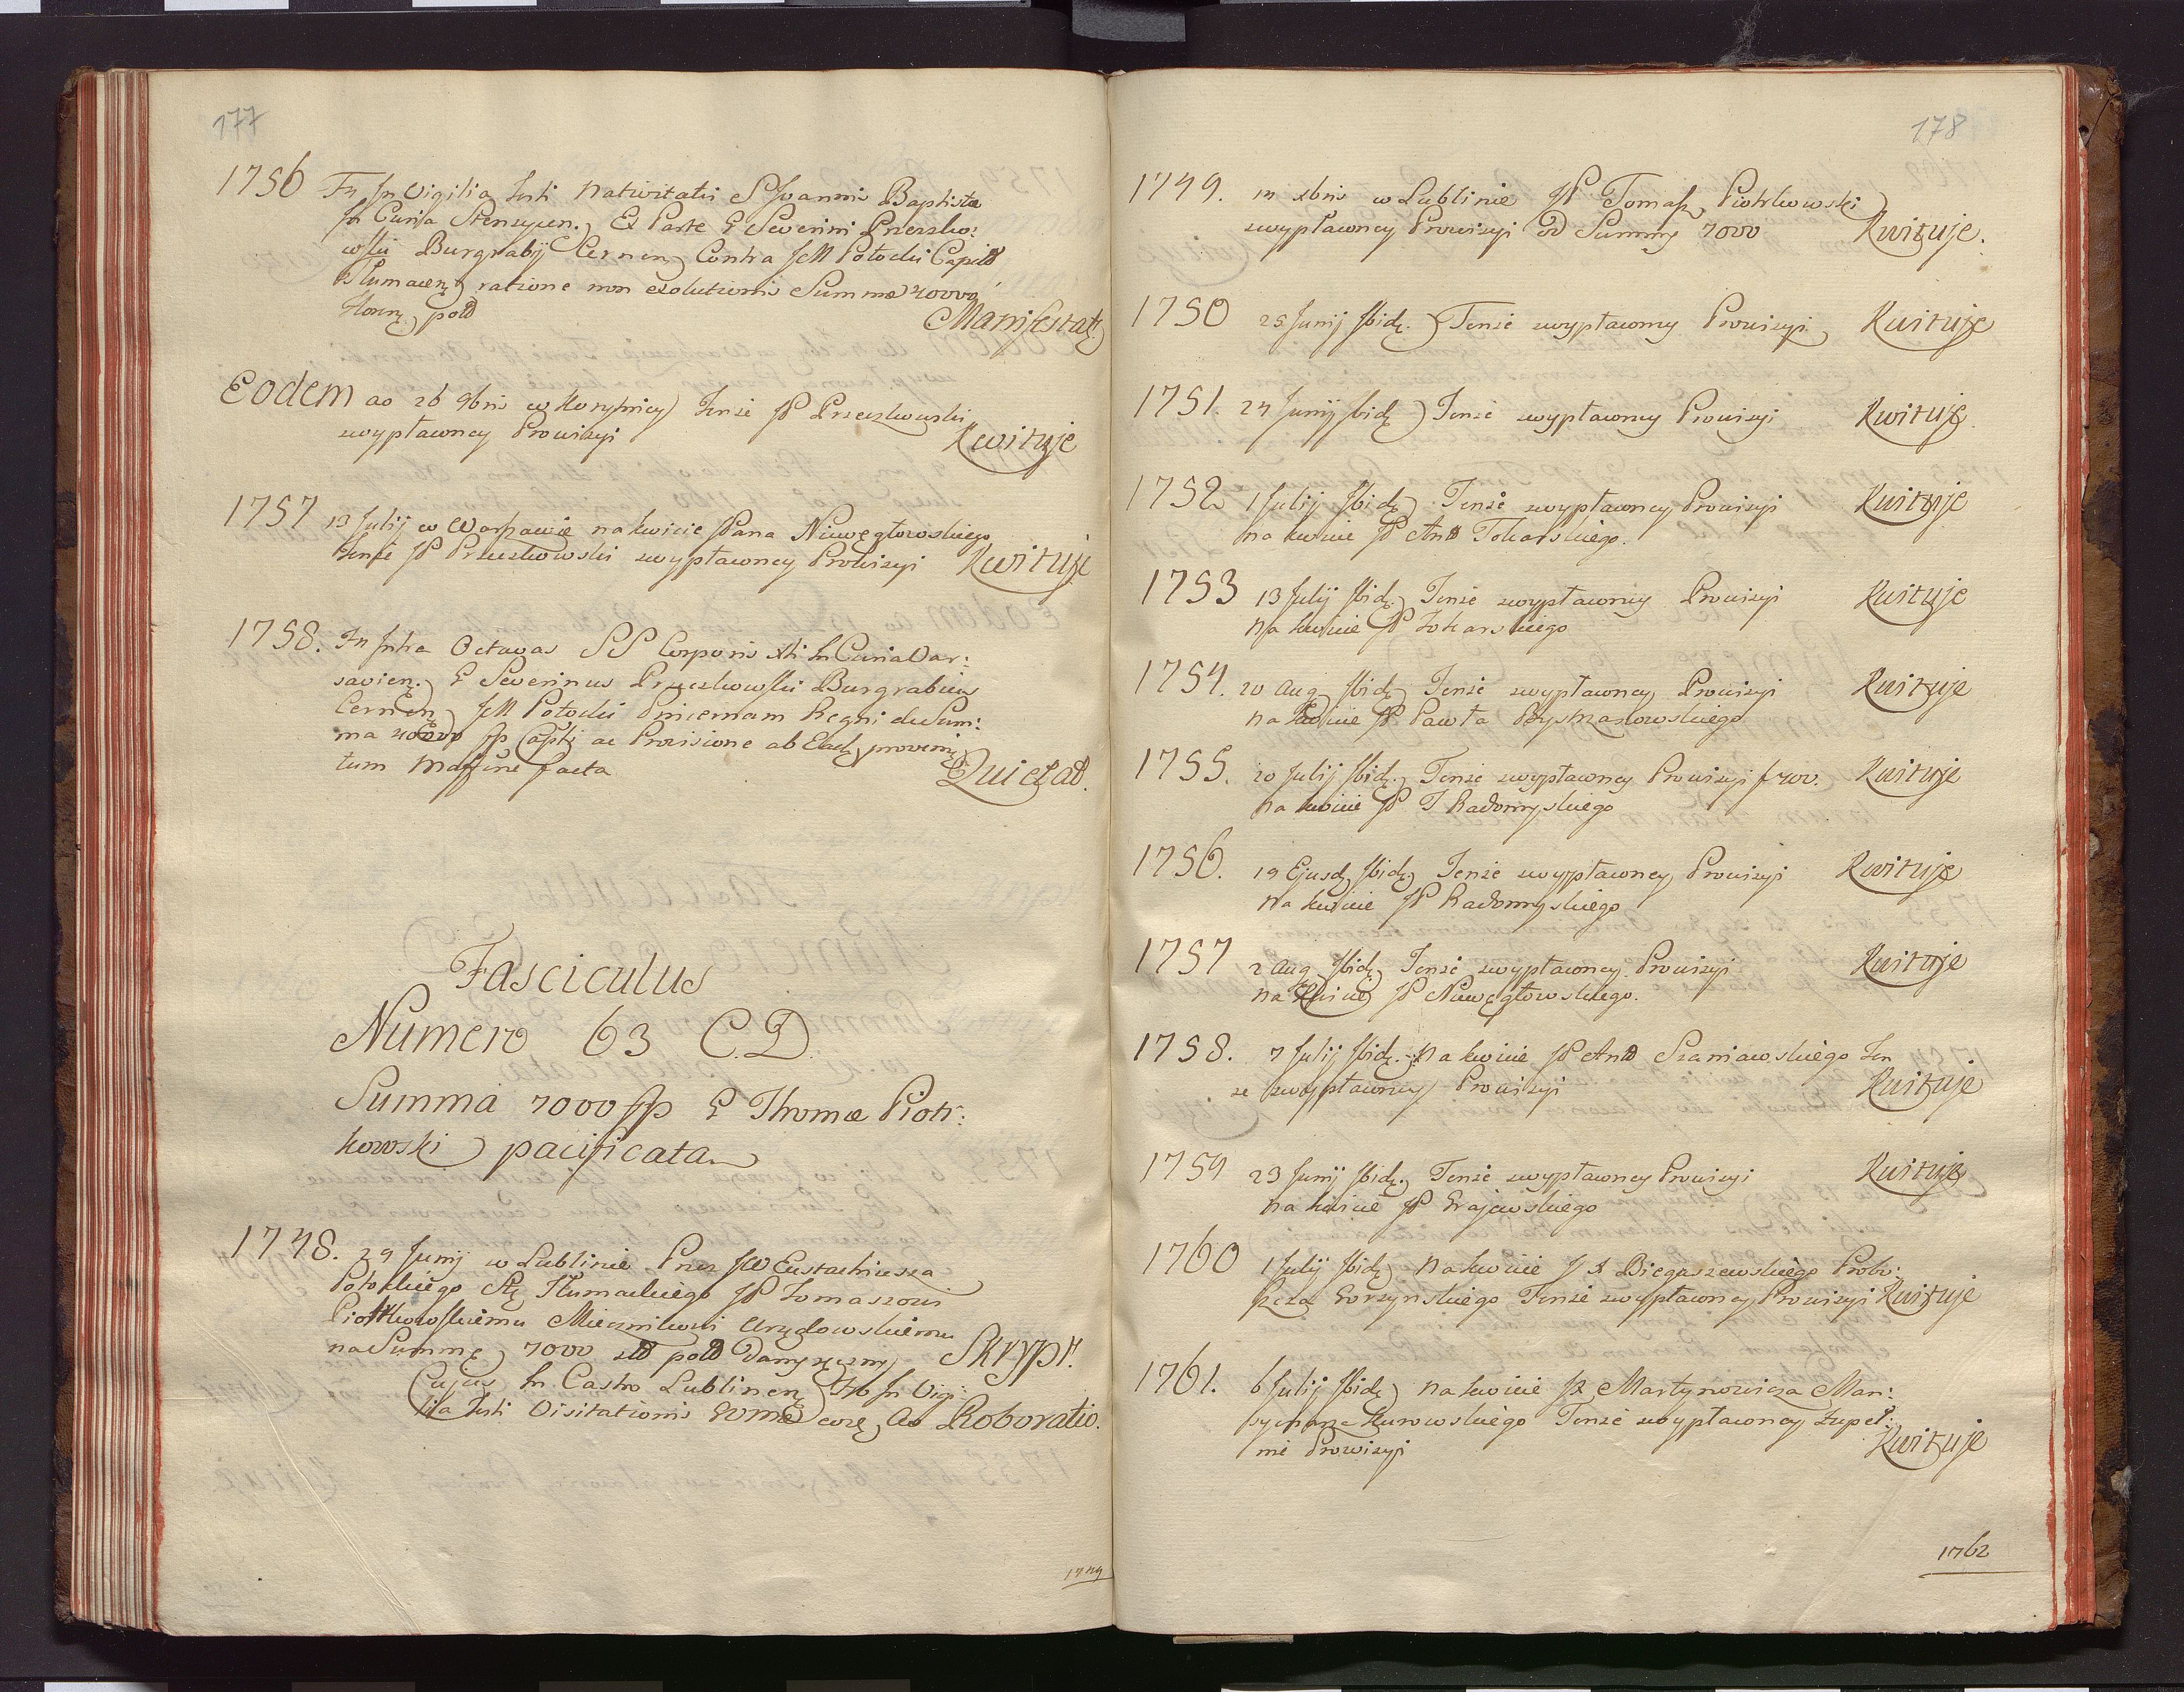 177
1756 Fr in Vigilia Festi Nativitatis S Joannis Baptistæ
In Curia Stenzycen. Ex Parte G Severini Przeszko:
wski Burgrabij Cernen. Contra JM Potocki Capit
Tłumacen. ratione non exolutionis Summæ
floren. pol Manifestat.
Eodem ao 26 9bris w Korytnicy Tenże JP Przeszkowski
wypłaconey Prowizyi Kwituje
1757 13 Julij w Warszawie na kwicie JPana Niewęgłowskiego
Tenże JP Przeszkowski wypłaconey Prowizyi Kwituje
1758. Fr Infra Octavas SS Corporis Xti In Curia Var:
savien. G Severinus Przeszkowski Burgrabius
Cernen. JM Potocki Pincernam Regni de Sum:
ma fp Capli ac Provisione ab Ead. proveni
tum Massine facta Quietat.
Fasciculus
Numero 63 C.D.
Summa 7000 fp G Thomæ Piotr:
kowski pacificata
1748. 29 Junij w Lublinie Przez JW Eustachiusza
Potockiego Stę Tłumackiego JP Tomaszowi
Piotrkowskiemu Miecznikowi Urzędowskiemu
na Summę 7000 zł pol Dany ręczny Skrypt.
Cujus In Castro Lublinen. In Vigi:
lia Festi Visitationis eo Ao Roboratio.
1749
178
1749. w Lublinie JP Tomasz Piotrkowski
wypłaconey Prowizyi od Summy 7000 Kwituje.
1750 25 Junij Ibid. Tenże wypłaconey Prowizyi Kwituje
1751. 24 Junij Ibid. Tenże wypłaconey Prowizyi Kwituje
1752 1 Julij Ibid. Tenże wypłaconey Prowizyi Kwituje
na kwicie JP Ant Tokarskiego.
1753 13 Julij Ibid. Tenże wypłaconey Prowizyi Kwituje
na kwicie JP Tokarskiego
1754. 20 Aug Ibid. Tenże wypłaconey Prowizyi Kwituje
na kwicie JP Pawła
1755. 20 Julij Ibid. Tenże wypłaconey Prowizyi f 700. Kwituje
na kwicie JP T Radomyskiego
1756. 19 Ejusd. Ibid. Tenże wypłaconey Prowizyi Kwituje
na kwicie JP Radomyskiego
1757 2 Aug Ibid. Tenże wypłaconey Prowizyi Kwituje
na kwicie JP Niewęgłowskiego.
1758. 7 Julij Ibid. Na kwicie JP Ant Szaniawskiego Ten
że wypłaconey Prowizyi Kwituje
1759 23 Junij Ibid. Tenże wypłaconey Prowizyi Kwituje
na kwicie JP Grajewskiego
1760 1 Julij Ibid. Na kwicie J X Biegaszewskiego Probo:
szcza Gorzynskiego Tenże wypłaconey Prowizyi Kwituje
1761. 6 Julij Ibid. Na kwicie JX Martynowicza Man:
syonarza Kurowskiego Tenże wypłaconey zupeł:
nie Prowizyi Kwituje
1762